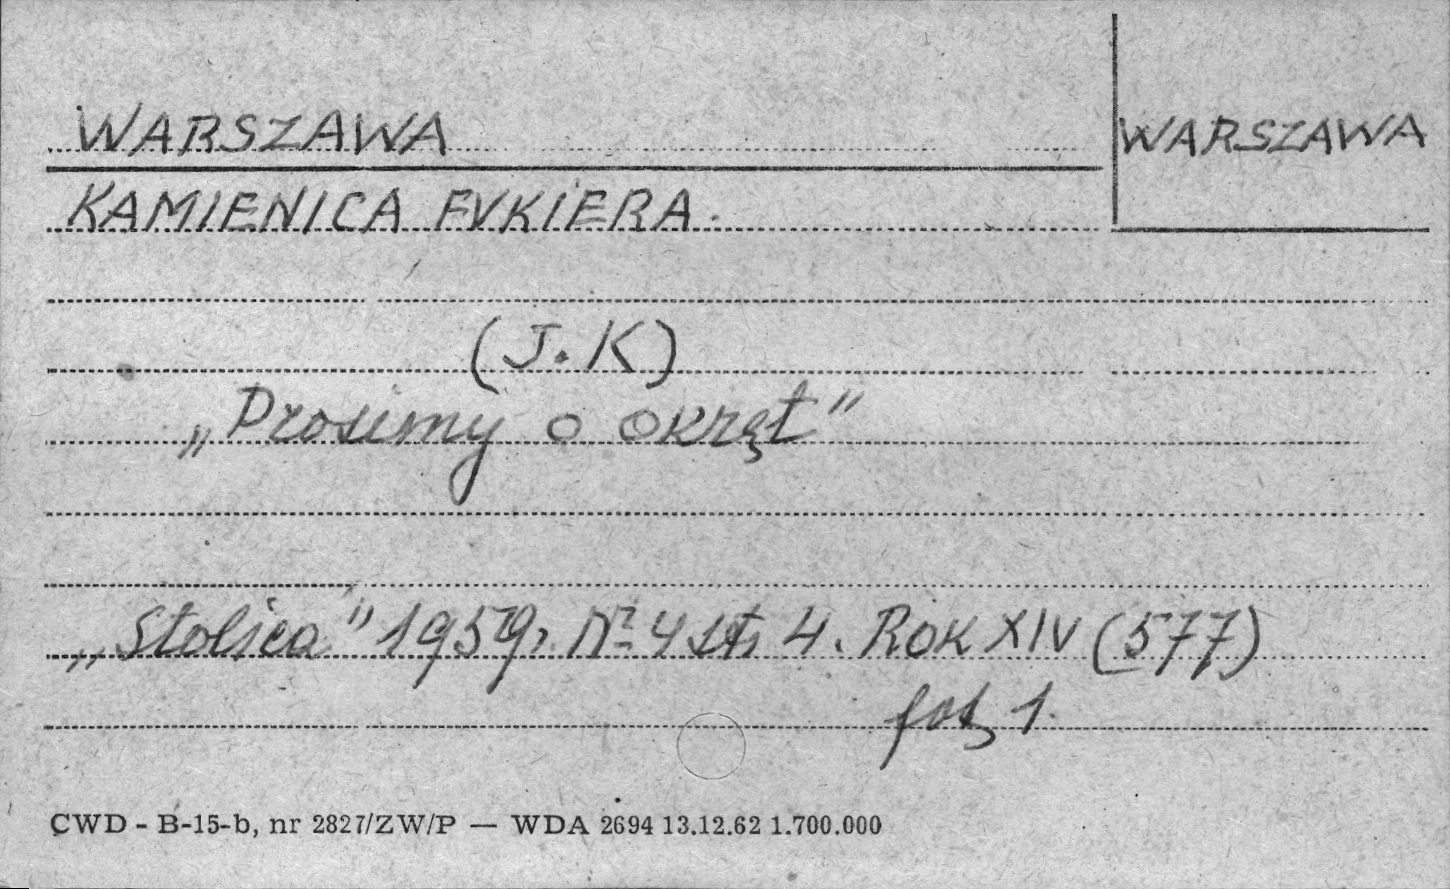 WARSZAWA
WARSZAWA
KAMIENICA FUKIERA.
(J.K)
„Prosimy o okręt"
„Stolica" 1959, Nr 4 st, 4. Rok XIV (577)
fot, 1.
CWD - B-15-b, nr 2827/ZW/P — WDA 2694 13.12.62 1.700.000